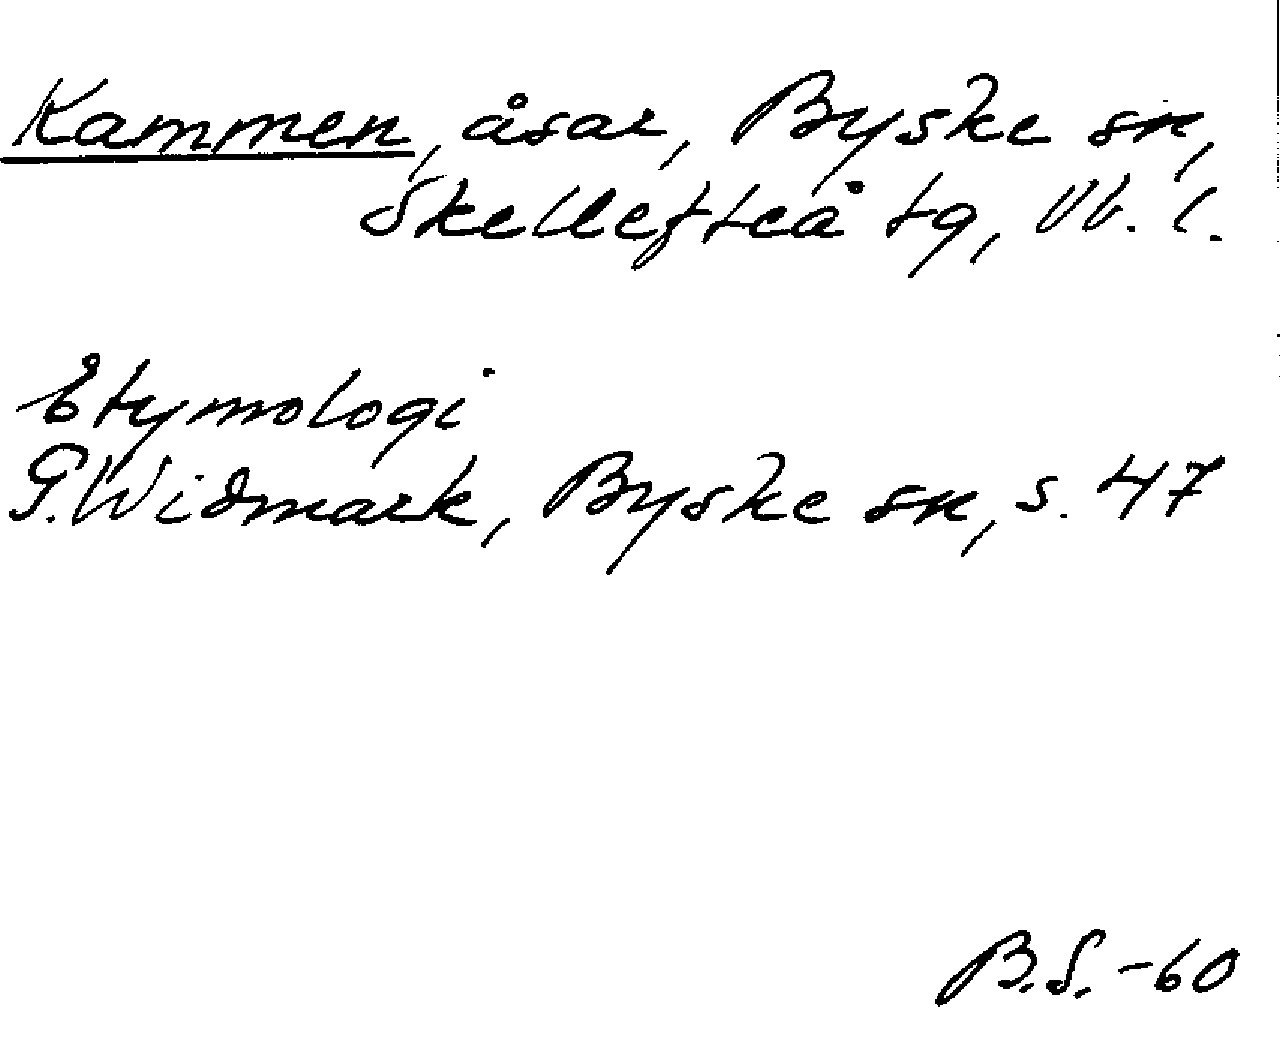 Kammen, åsar, Byske sn,
Skellefteå tg, Vb. l.
Etymologi
G. Widmark, Byske sn, s. 47
B.S. -60